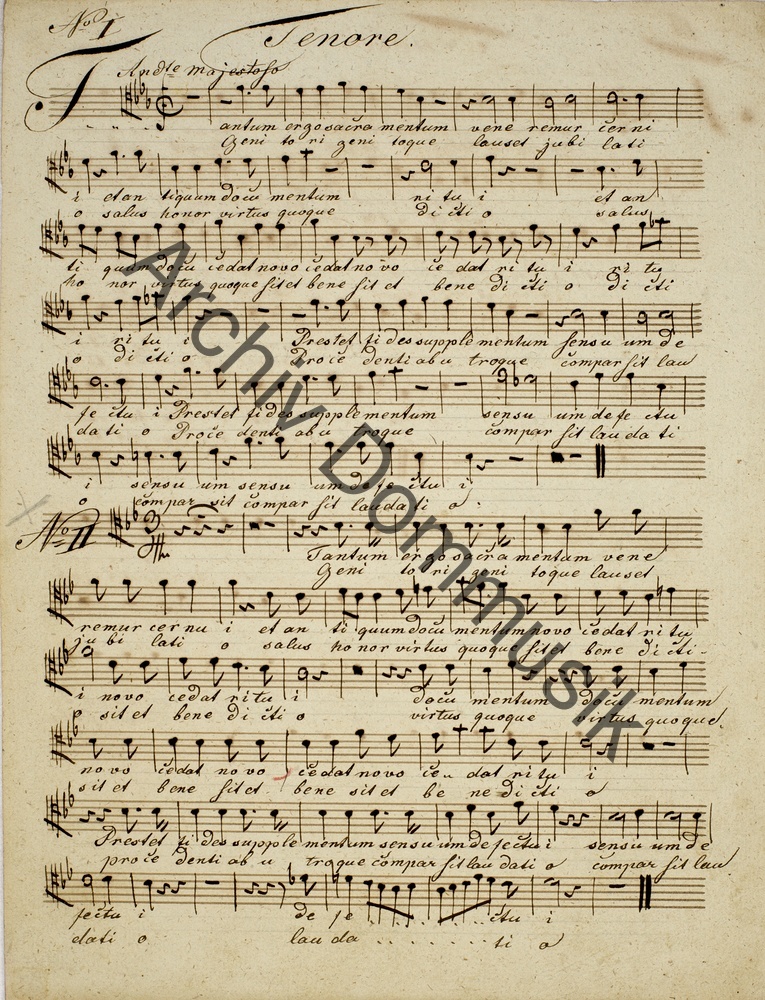 No. I
Tenore.
And.te majestoso
T
antum ergo sacra mentum vene remur cer ni
Geni to ri geni toque lauset jubi lati
i et an tiquum docu mentum ni tu i et an
o salus honor virtus quoque di cti o salus
ti quum docu cedat novo cedat no vo ce dat ri tu i ri tu
ho nor virtus quoque sit et bene sit et bene di cti o di cti
i ri tu i Prestet fi des supple mentum sensu um de
o di cti o Proce denti ab u troque compar sit lau
fe ctu i Prestet fides supple mentum sensu um de fe ctu
da ti o Proce denti ab u troque compar sit lau da ti
i sensu um sensu um de fe ctu i
o compar sit compar sit laudati o
No. II
Tantum ergo sacra mentum vene
Geni to ri geni toque lauset
remur cer nu i et an ti quum docu mentum novo cedat ri tu
ju bi lati o salus ho nor virtus quoque sit et bene di cti -
i novo cedat ri tu i docu mentum docu mentum
o sit et bene di cti o virtus quoque virtus quoque
no vo cedat no vo cedat novo ce.. dat ri tu i
sit et bene sit et bene sit et be ne di cti o
Prestet fi des supple mentum sensu um de fectu i sensu um de
proce denti ab u troque compar sit lau dati o compar sit lau
fectu i de fe . . . . . . ctu i
dati o lau da . . . . . . . . ti o
Archiv Dommusik